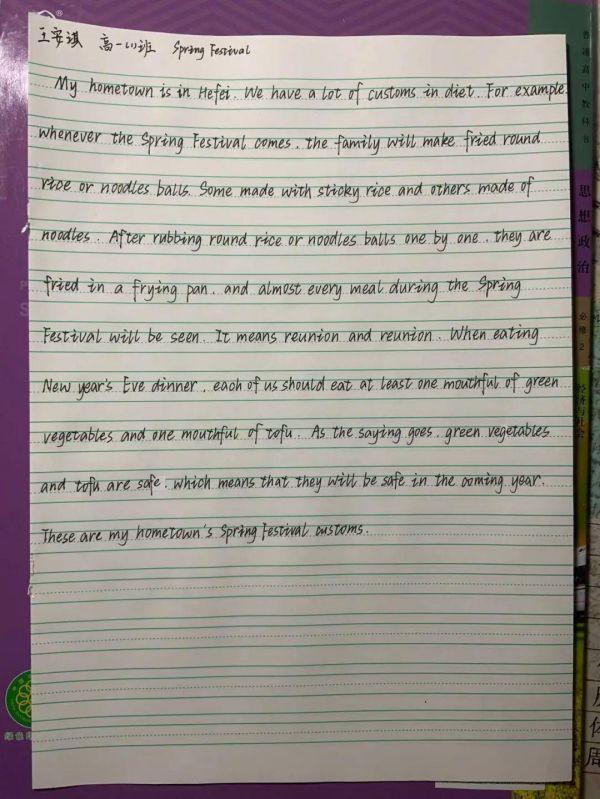 王安淇 高一(1)班 Spring Festival
My hometown is in Hefei. We have a lot of customs in diet. For example.
whenever the Spring Festival comes. the family will make fried round
rice or noodles balls. Some made with sticky rice and others made of
noodles. After rubbing round rice or noodles balls one by one. they are
fried in a frying pan. and almost every meal during the Spring
Festival will be seen. It means reunion and reunion. When eating
New year's Eve dinner. each of us should eat at least one mouthful of green
vegetables and one mouthful of tofu. As the saying goes. green vegetables
and tofu are safe. which means that they will be safe in the coming year.
These are my hometown's Spring Festival customs.
普通高中教科书
思想政治
必修 2
经济与社会